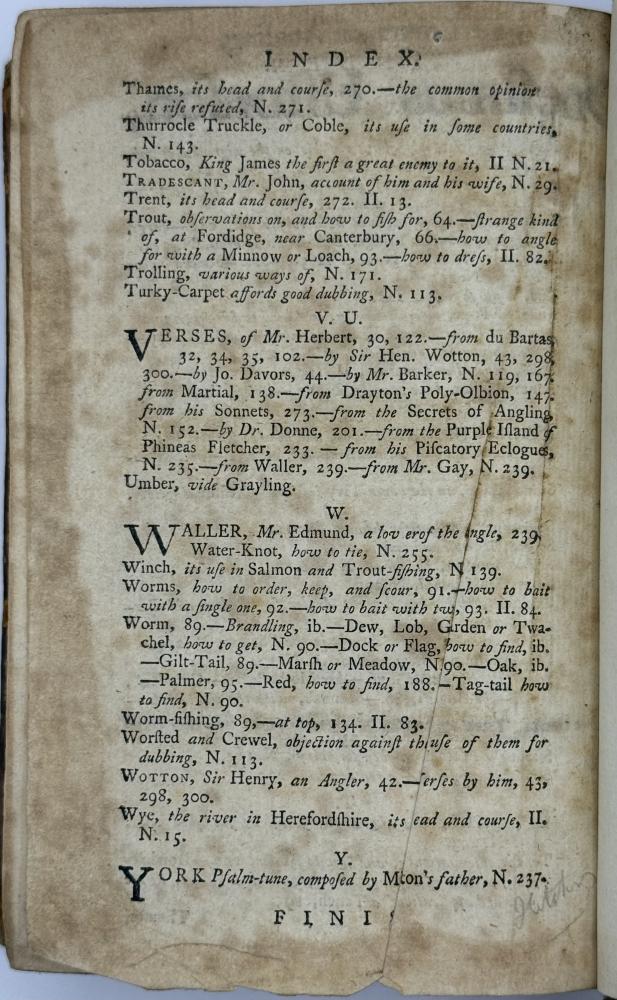 INDEX.
Thames, its head and courſe, 270.—the common opinion
its riſe refuted, N. 271.
Thurrocle Truckle, or Coble, its uſe in ſome countries,
N. 143.
Tobacco, King James the firſt a great enemy to it, II N. 21.
TRADESCANT, Mr. John, account of him and his wife, N. 29.
Trent, its head and courſe, 272. II. 13.
Trout, obſervations on, and how to fiſh for, 64.—ſtrange kind
of, at Fordidge, near Canterbury, 66.—how to angle
for with a Minnow or Loach, 93.—how to dreſs, II. 82.
Trolling, various ways of, N. 171.
Turky-Carpet affords good dubbing, N. 113.
V. U.
VERSES, of Mr. Herbert, 30, 122.—from du Bartas,
32, 34, 35, 102.—by Sir Hen. Wotton, 43, 298,
300.—by Jo. Davors, 44.—by Mr. Barker, N. 119, 167.
from Martial, 138.—from Drayton's Poly-Olbion, 147.
from his Sonnets, 273.—from the Secrets of Angling,
N. 152.—by Dr. Donne, 201.—from the Purple Iſland of
Phineas Fletcher, 233.—from his Piſcatory Eclogues,
N. 235.—from Waller, 239.—from Mr. Gay, N. 239.
Umber, vide Grayling.
W.
WALLER, Mr. Edmund, a lov erof the ngle, 239.
Water-Knot, how to tie, N. 255.
Winch, its uſe in Salmon and Trout-fiſhing, N 139.
Worms, how to order, keep, and ſcour, 91.—how to bait
with a ſingle one, 92.—how to bait with two, 93. II. 84.
Worm, 89.—Brandling, ib.—Dew, Lob, Garden or Twa-
chel, how to get, N. 90.—Dock or Flag, how to find, ib.
—Gilt-Tail, 89.—Marſh or Meadow, N. 90.—Oak, ib.
—Palmer, 95.—Red, how to find, 188.—Tag-tail how
to find, N. 90.
Worm-fiſhing, 89,—at top, 134. II. 83.
Worſted and Crewel, objection againſt th uſe of them for
dubbing, N. 113.
WOTTON, Sir Henry, an Angler, 42.—erſes by him, 43,
298, 300.
Wye, the river in Herefordſhire, its ead and courſe, II.
N. 15.
Y.
YORK Pſalm-tune, compoſed by M ton's father, N. 237.
FINI